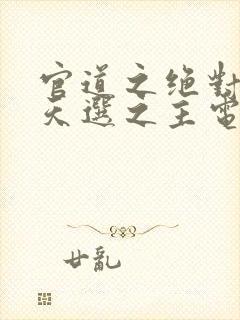 官道之绝對
天選之主電
廿亂